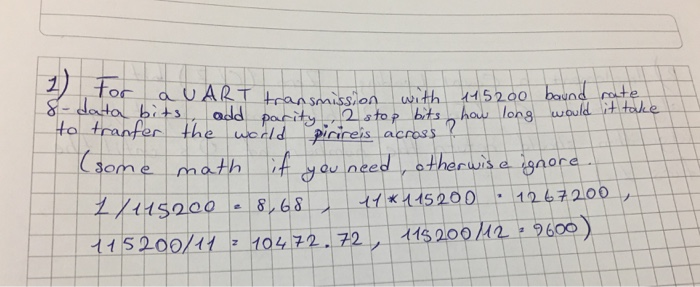 1) For a UART transmission with 115200 baund rate
8-data bits, add parity, 2 stop bits, how long would it take
to tranfer the world pirireis across?
(some math if you need, otherwise ignore.
1/115200 = 8,68, 11*115200 = 1267200,
115200/11 = 10472.72, 115200/12 = 9600)